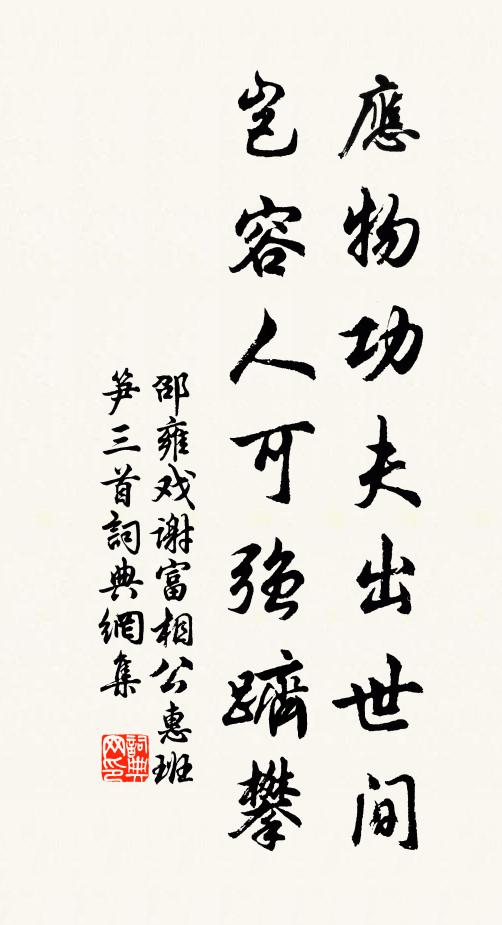 應物功夫出世间
岂容人可强躋攀
邵雍戏谢富相公惠班
笋三首詞典網集
詞典网印